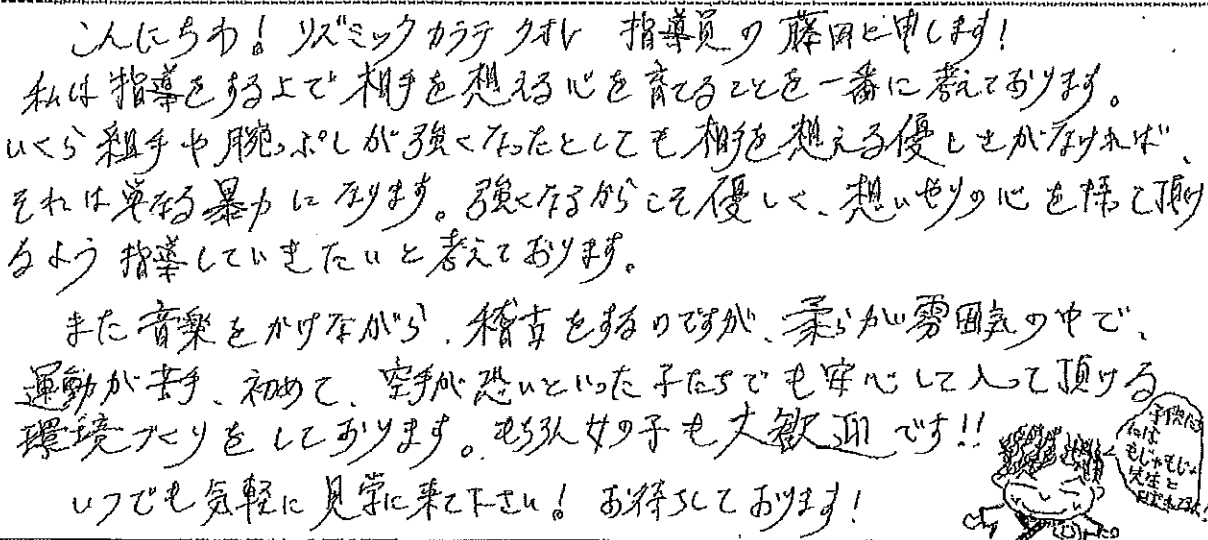 こんにちわ！リズミックカラテ クオレ 指導員の藤田と申します！
私は指導をする上で相手を想える心を育てることを一番に考えております。
いくら組手や腕っぷしが強くなったとしても相手を想える優しさがなければ、
それは単なる暴力になります。強くなるからこそ優しく、想いやりの心を持って頂け
るよう指導していきたいと考えております。
また音楽をかけながら、稽古をするのですが、柔らかい雰囲気の中で、
運動が苦手、初めて、空手が恐いといった子たちでも安心して入って頂ける
環境づくりをしております。もちろん女の子も大歓迎です!!
いつでも気軽に見学に来て下さい！お待ちしております！
子供たち
には
もじゃもじゃ
先生と